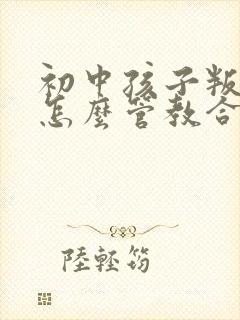 初中孩子叛
怎麼管教合
陸輕筠